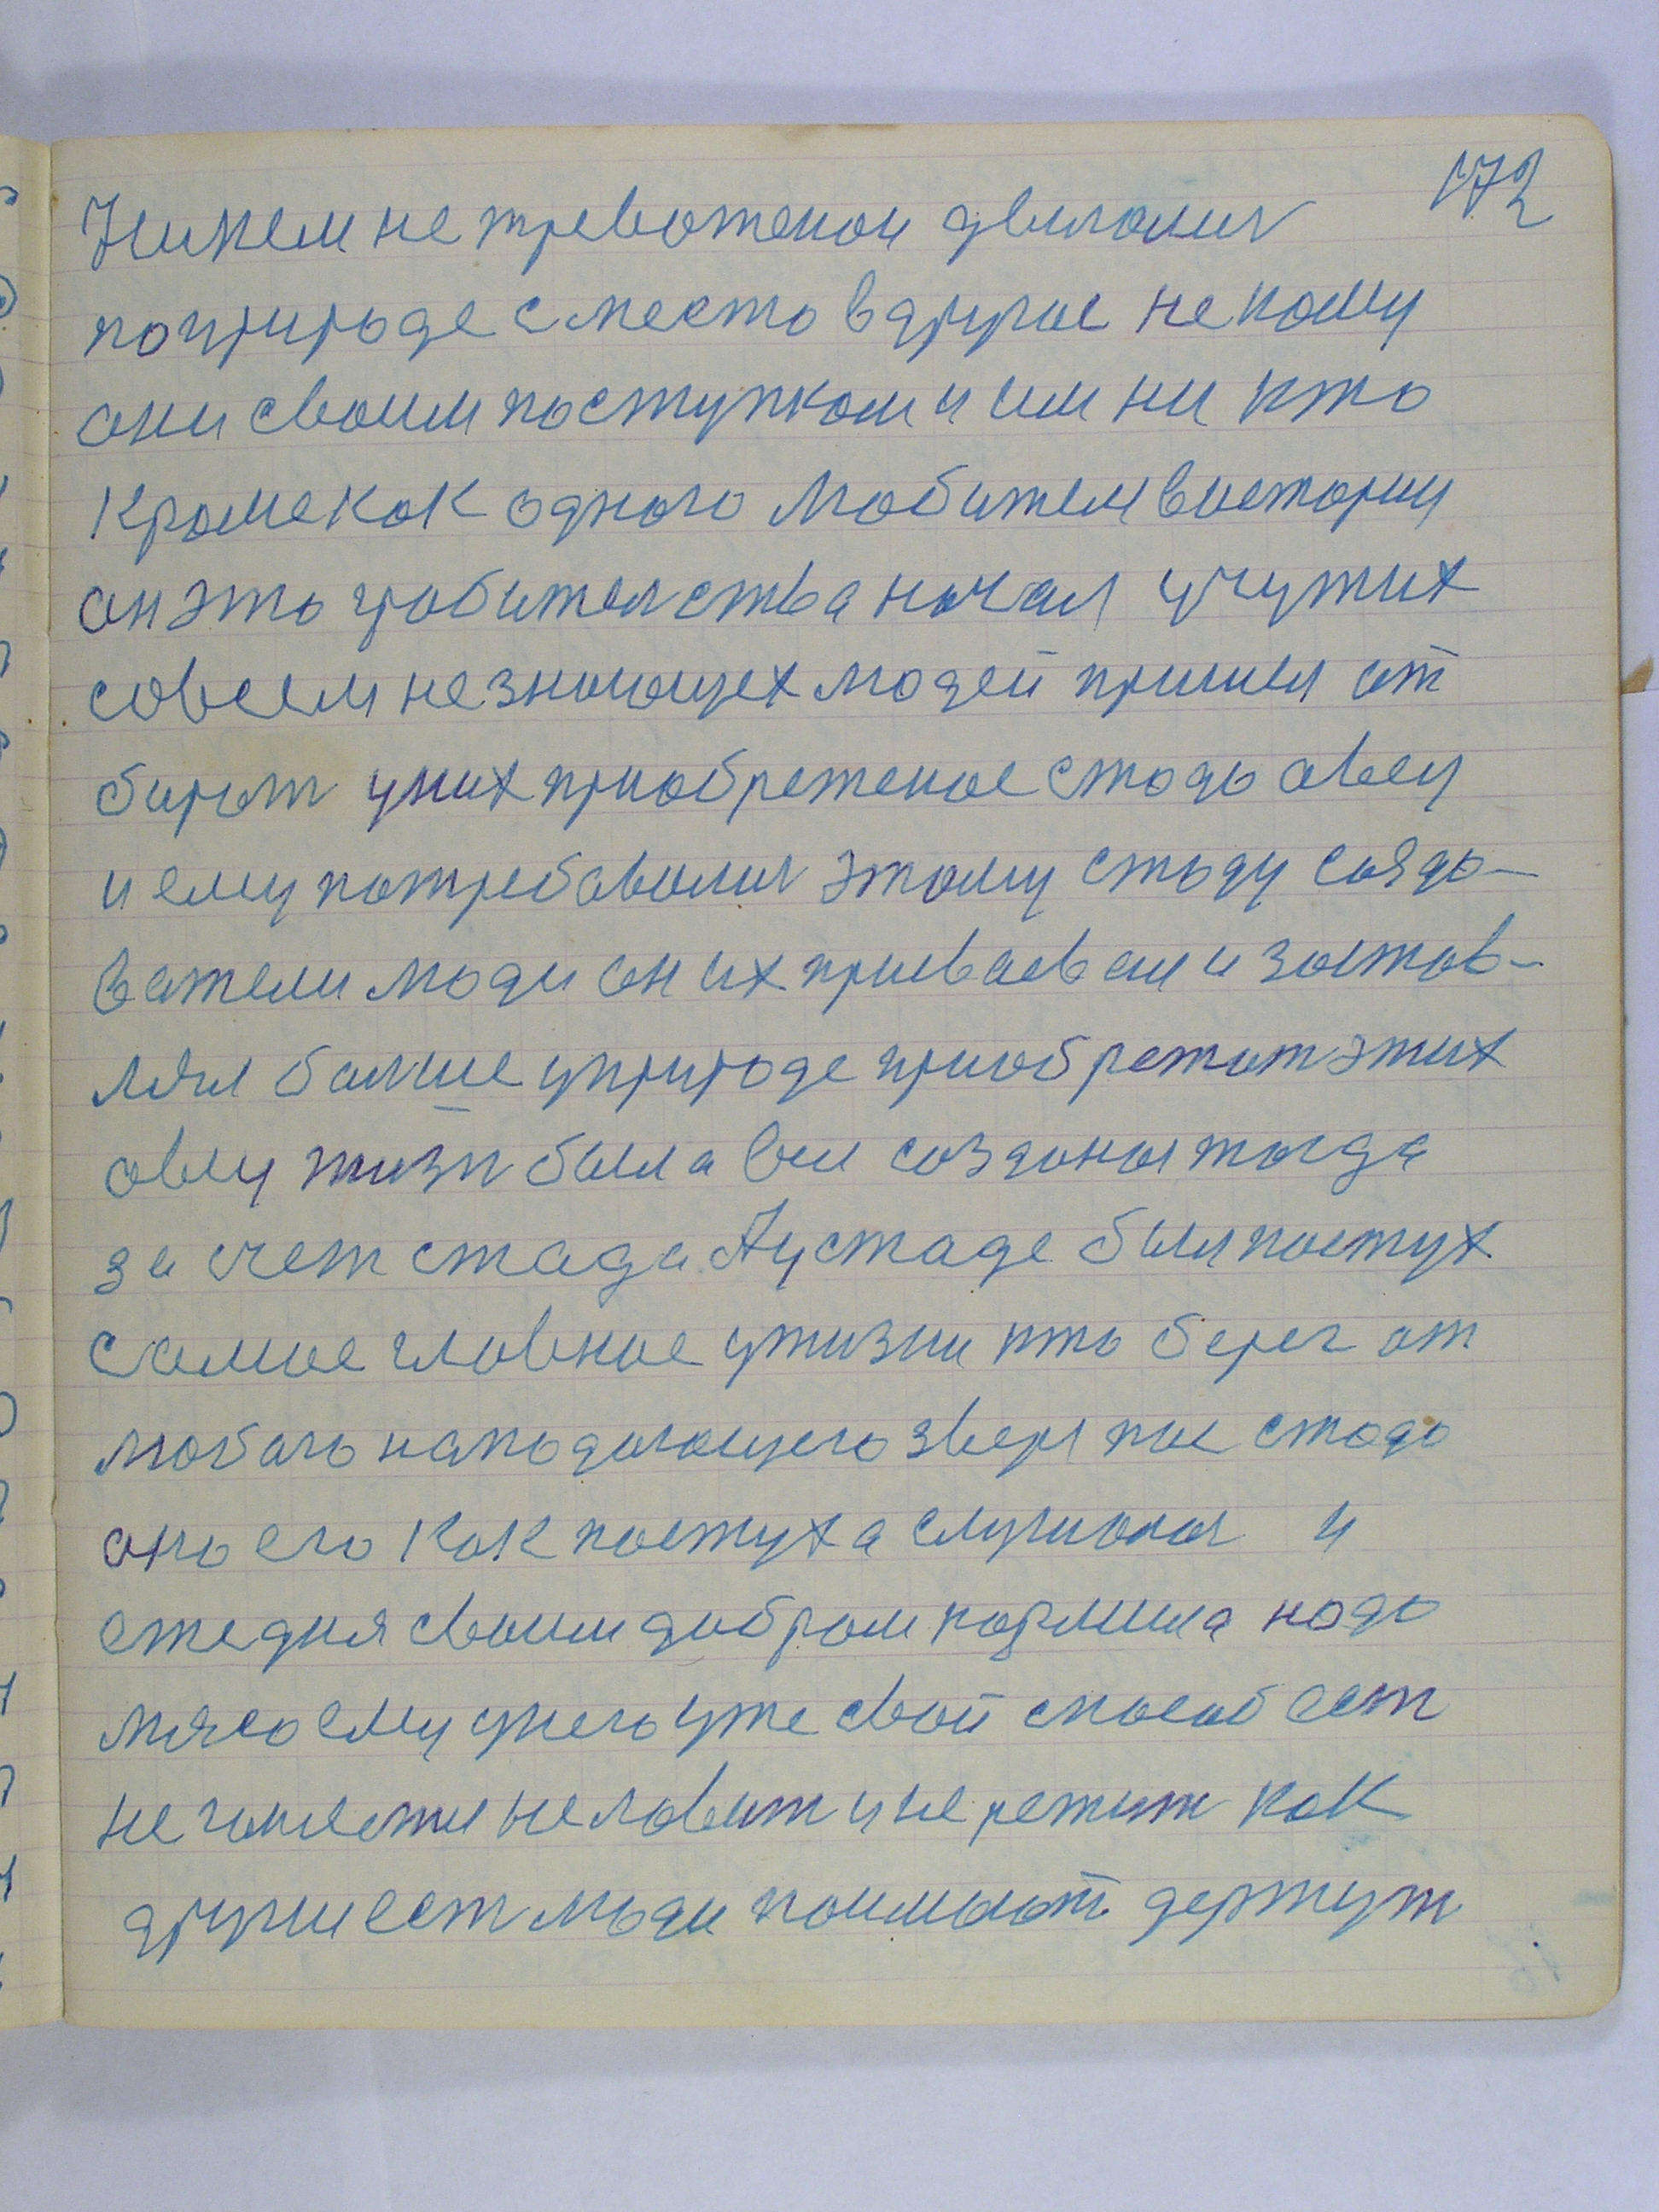 172
Никем не тревоженои двигалися
по природе с место в другое не кому
они своим поступком и им ни кто
Кроме как одного любителя в истории
он это грабителства начал у чужих
совсем не знающех людей пришел от
бират у них приобретеное стадо авец
и ему потребовалися этому стаду создо-
ватели люди он их присваевал и застав-
лял болше у природе приобретат этих
авец жизн была вся создоная тогда
за счет стада А у стаде был пастух
самое главное у жизни кто берег от
любого нападающего зверя тое стадо
оно его как пастуха слушолося и
ежедня своим добром кормила надо
мясо ему у него уже свой способ ест
не гоняется не ловит и не режит как
другии ест люди поимают держут